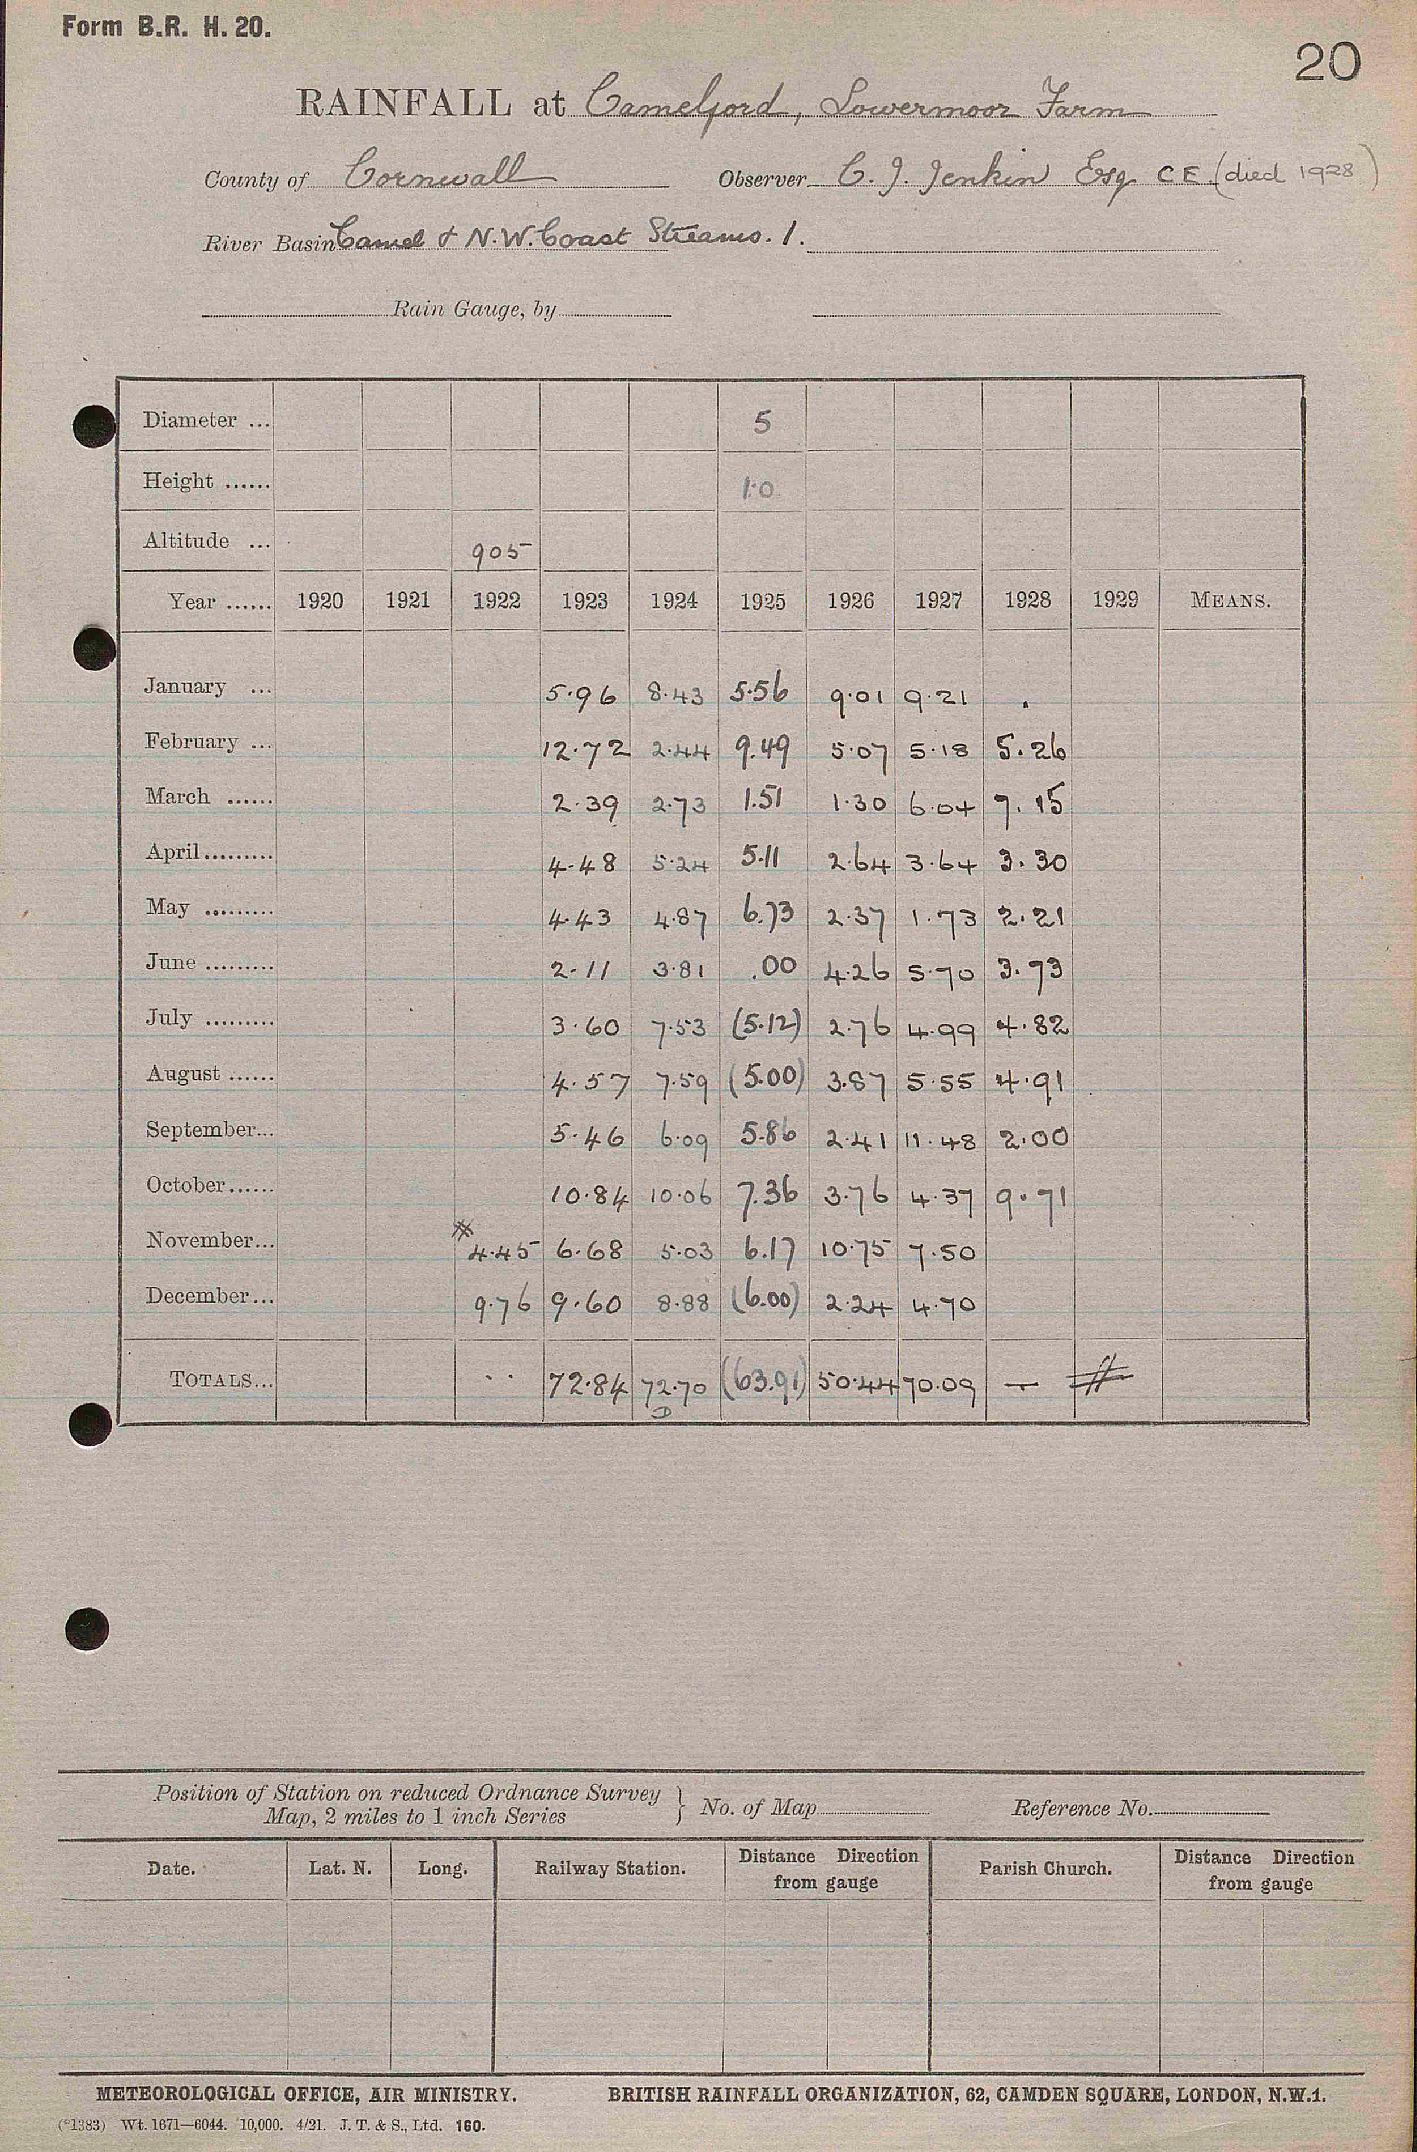 Form B.R. H. 20.
20
RAINFALL at Camelford, Lowermoor Farm
County of Cornwall Observer C. J. Jenkin Esq C E (died 1928)
River Basin Camel & N.W. Coast Streams. 1.
Rain Gauge, by
Diameter ... 5
Height ...... 1.0
Altitude ... 905
Year ...... 1920 1921 1922 1923 1924 1925 1926 1927 1928 1929 MEANS.
January ... 5.96 8.43 5.56 9.01 9.21 .
February ... 12.72 2.44 9.49 5.07 5.18 5.26
March ...... 2.39 2.73 1.51 1.30 6.04 7.15
April......... 4.48 5.24 5.11 2.64 3.64 3.30
May ......... 4.43 4.87 6.73 2.37 1.73 2.21
June ......... 2.11 3.81 .00 4.26 5.70 3.73
July ......... 3.60 7.53 (5.12) 2.76 4.99 4.82
August ...... 4.57 7.59 (5.00) 3.87 5.55 4.91
September... 5.46 6.09 5.86 2.41 11.48 2.00
October...... 10.84 10.06 7.36 3.76 4.37 9.71
November... # 4.45 6.68 5.03 6.17 10.75 7.50
December... 9.76 9.60 8.88 (6.00) 2.24 4.70
TOTALS... .. 72.84 72.70 (63.91) 50.44 70.09 — #
D
Position of Station on reduced Ordnance Survey
Map, 2 miles to 1 inch Series } No. of Map Reference No.
Date. Lat. N. Long. Railway Station. Distance Direction from gauge Parish Church. Distance Direction from gauge
METEOROLOGICAL OFFICE, AIR MINISTRY. BRITISH RAINFALL ORGANIZATION, 62, CAMDEN SQUARE, LONDON, N.W.1.
(*1383) Wt. 1671—6044. 10,000. 4/21. J. T. & S., Ltd. 160.